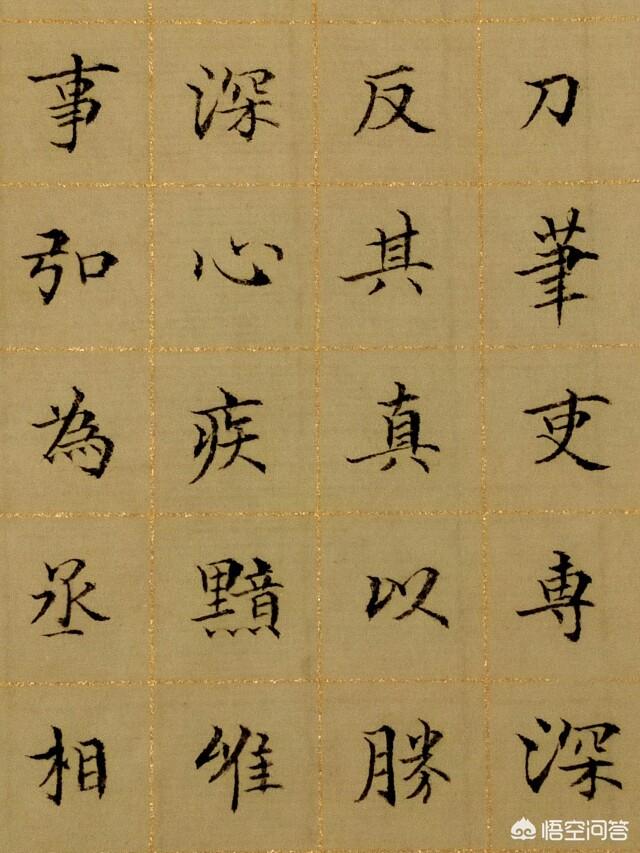 刀筆吏専深
反其真以勝
深心疾黯惟
事弘為丞相
悟空问答